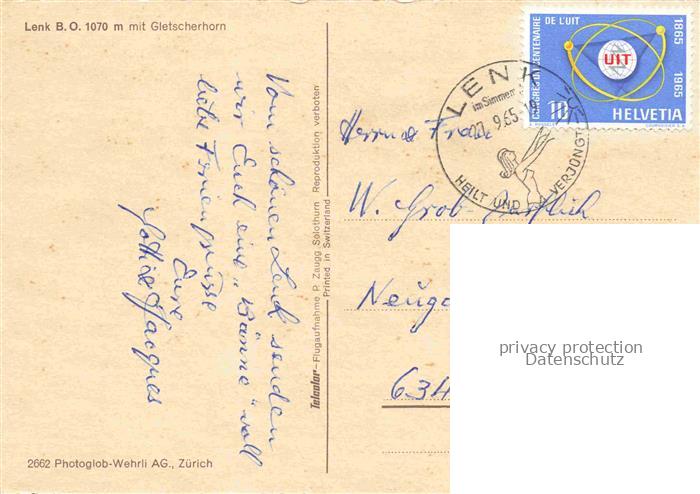 Lenk B.O. 1070 m mit Gletscherhorn
Vom schönen Lenk senden
wir Euch eine „Bänne" voll
liebe Feriengrüsse
Eure
Jacques
2662 Photoglob-Wehrli AG., Zürich
Telcolor-Flugaufnahme P. Zaugg, Solothurn Reproduktion verboten
Printed in Switzerland
CONGRES DU CENTENAIRE DE L'UIT
1865
1965
UIT
10
HELVETIA
LENK
im Simmen
27. 9.65-18
HEILT UND VERJÜNGT
Herrn & Frau
W. Grob
634
privacy protection
Datenschutz